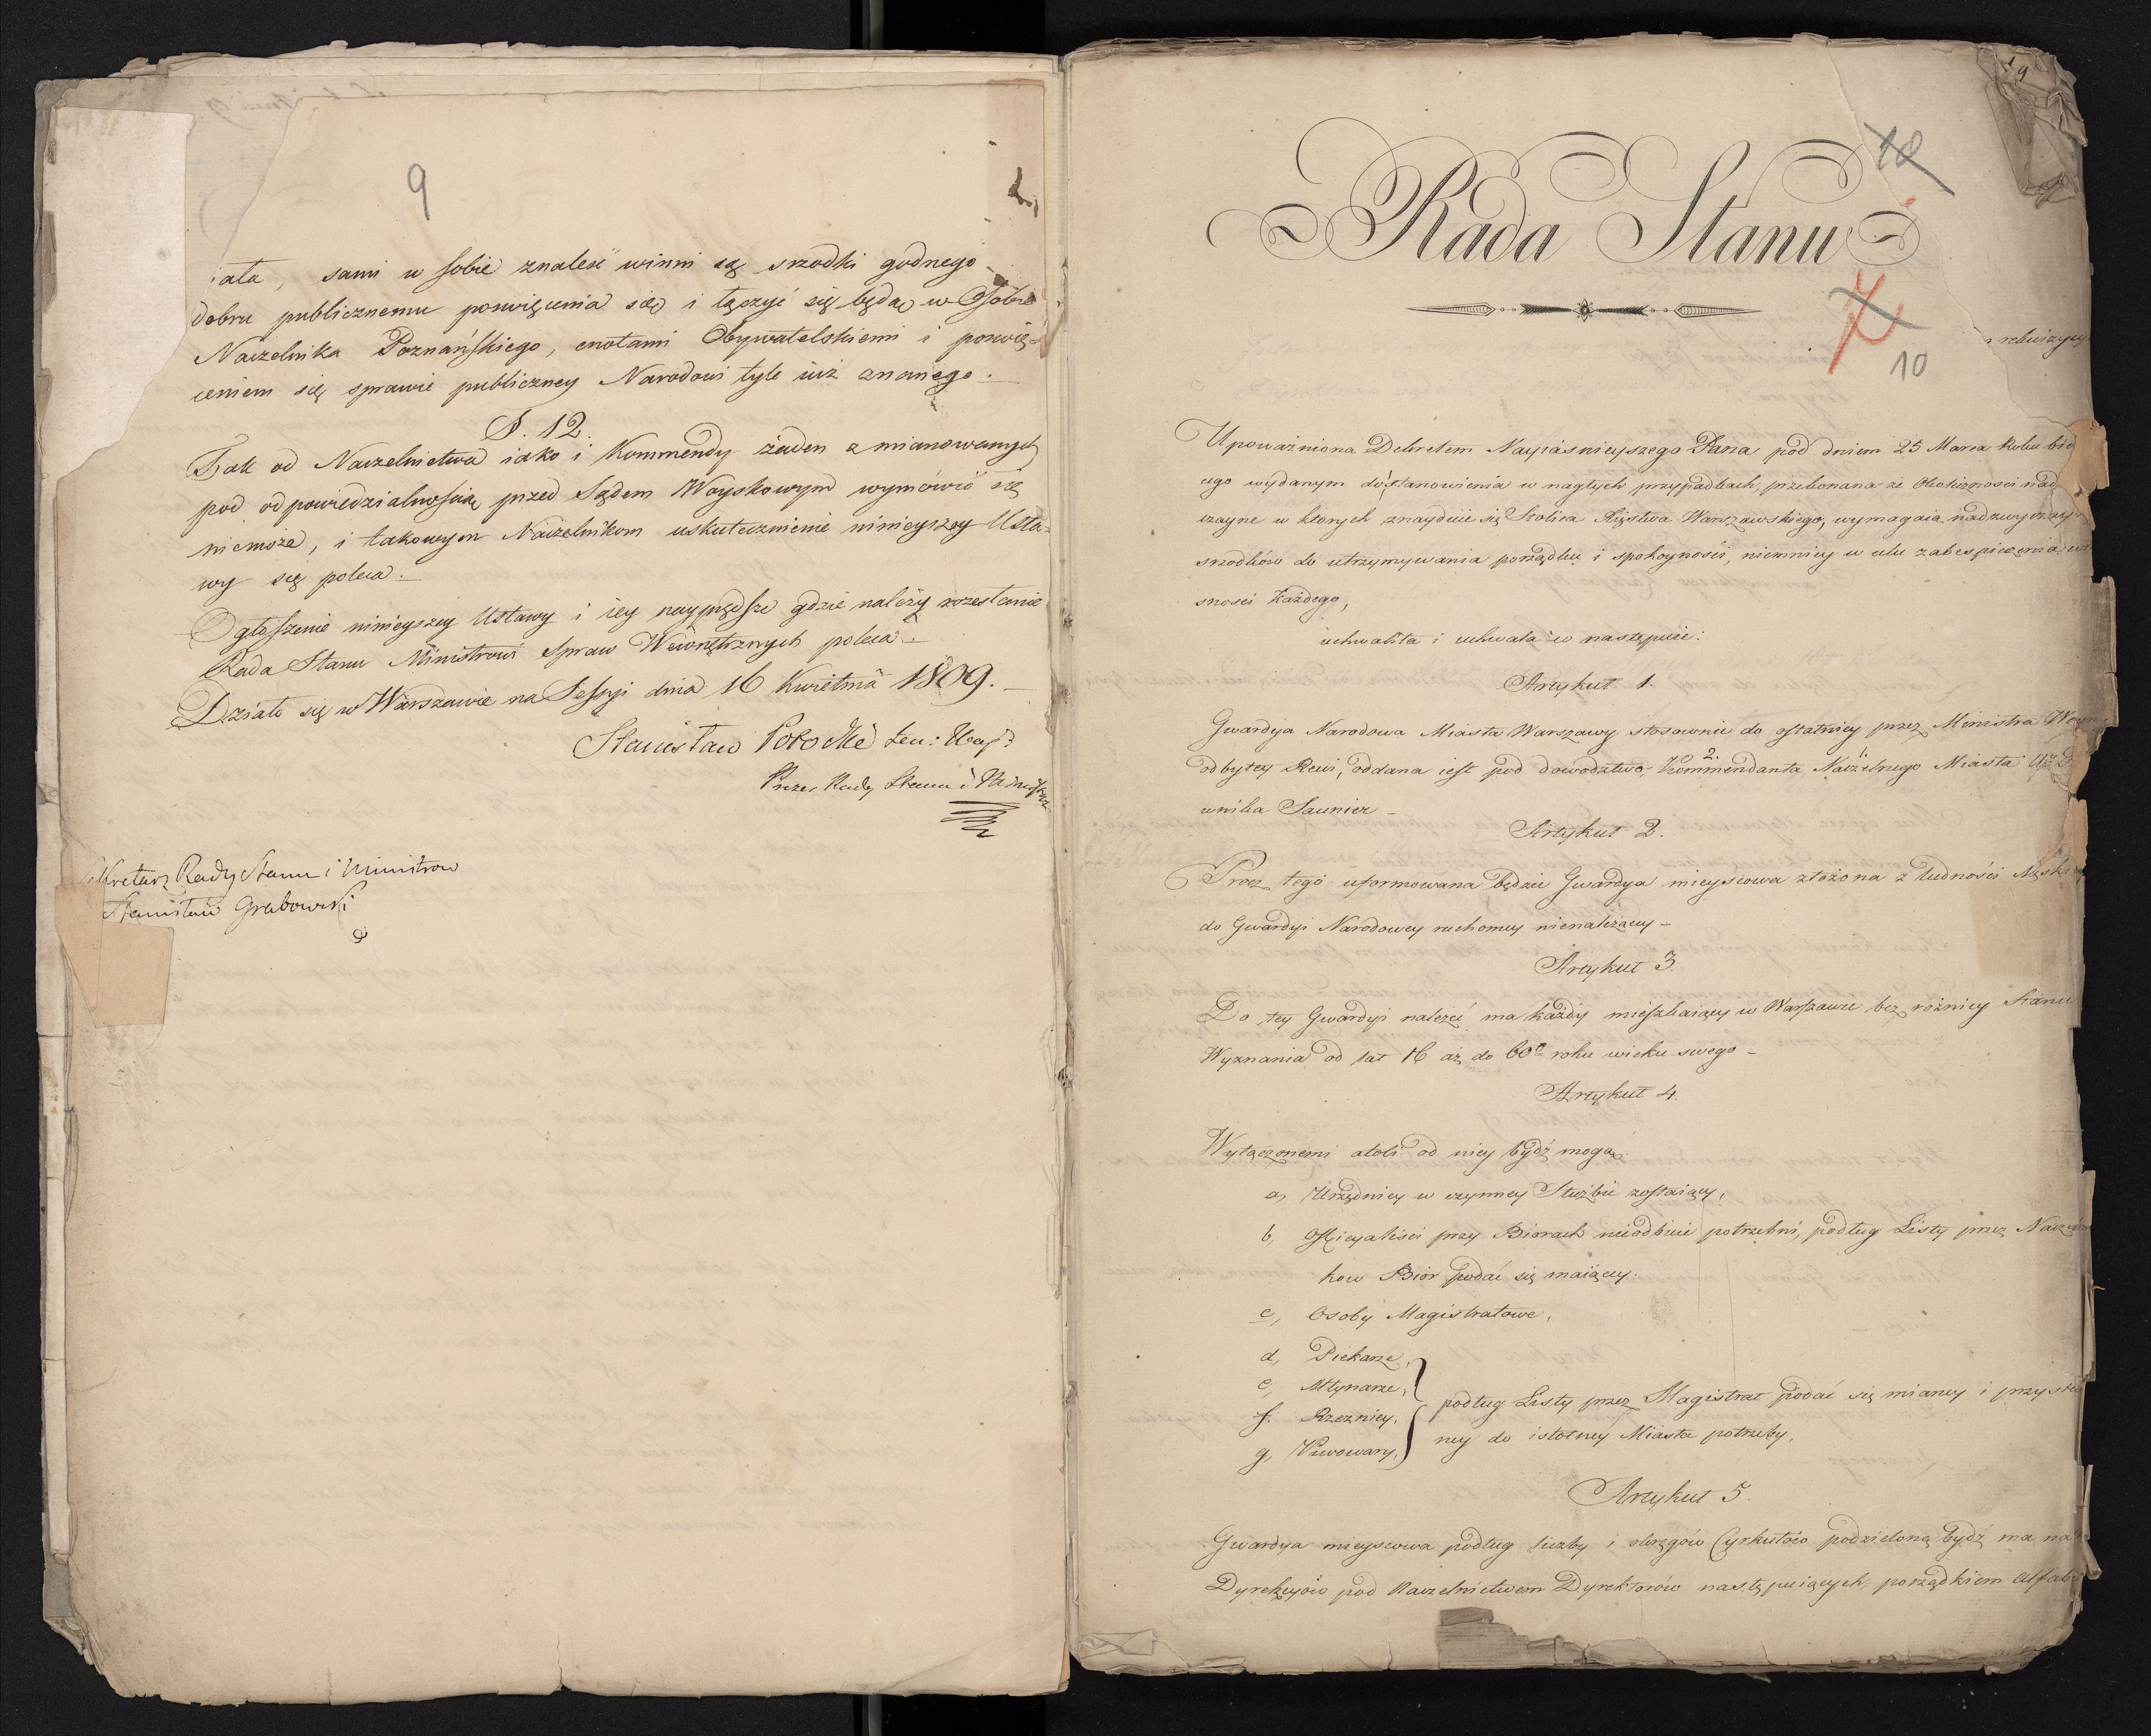 9
sami w sobie znaleść winni są srzodki godnego
dobru publicznemu poswięcenia się i łączyć się będą w Osobie
Naczelnika Poznańskiego, cnotami Obywatelskiemi i poswię-
ceniem się sprawie publiczney Narodowi tyle iuż znanego.
§. 12.
Tak od Naczelnictwa iako i Kommendy żaden z mianowanych
pod odpowiedzialnością przed Sądem Woyskowym wymówić się
niemoże, i takowym Naczelnikom uskutecznienie ninieyszey Usta-
wy się poleca.
Ogłoszenie ninieyszey Ustawy i iey nayprędsze gdzie należy rozesłanie
Rada Stanu Ministrowi Spraw Wewnętrznych poleca.
Działo się w Warszawie na Sessyi dnia 16 Kwietnia 1809.
Stanisław Potocki
Prezes Rady Stanu i Ministrów
Sekretarz Rady Stanu i Ministrow
Stanisław Grabowski
9
18
Rada Stanu
7
10
Upoważniona Dekretem Nayiaśnieyszego Pana pod dniem 25 Marca Roku bie
cego wydanym do stanowienia w nagłych przypadkach, przekonana że Okoliczności nad
czayne w których znayduie się Stolica Xięstwa Warszawskiego, wymagaią nadzwyczayn
srzodków do utrzymywania porządku i spokoyności, niemniey w celu zabespieczenia
sności Każdego,
uchwaliła i uchwala co następuie:
Artykuł 1.
Gwardya Narodowa Miasta Warszawy stosownie do ostatniey przez Ministra Woyny
odbytey Rewi, oddana iest pod dowodztwo Kommendanta Naczelnego Miasta
wnika Saunier
Artykuł 2.
Procz tego uformowana będzie Gwardya mieyscowa złożona z ludności Męski
do Gwardyi Narodowey ruchomey nienależącey
Artykuł 3.
Do tey Gwardyi należeć ma każdy mieszkaiący w Warszawie bez różnicy Stanu
Wyznania od lat 16 aż do 60º roku wieku swego
Artykuł 4.
Wyłączonemi atoli od niey bydź mogą
a, Urzędnicy w czynney Służbie zostaiący,
b, Officyaliści przy Biorach nieodbicie potrzebni, podług Listy przez Naczelni
kow Bior podać się maiącey.
c, Osoby Magistratowe,
d, Piekarze,
e, Młynarze,
f. Rzeznicy,
g, Piwowary,
podług Listy przez Magistrat podać się mianey i przysto
ney do istotney Miasta potrzeby.
Artykuł 5.
Gwardya mieyscowa podług liczby i okręgów Cyrkułów podzieloną bydź ma na
Dyrekcyów pod Naczelnictwem Dyrektorów następuiących, porządkiem Alfab